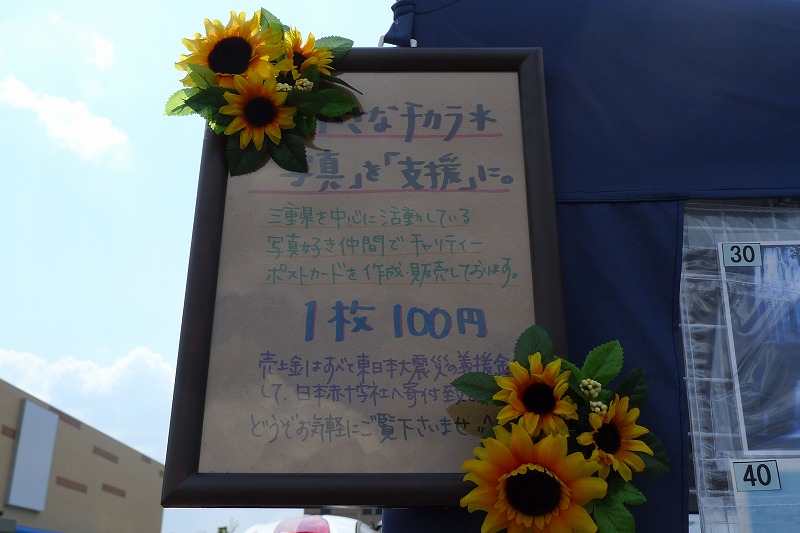 さなチカラ＊
写真」を「支援」に。
三重県を中心に活動している
写真好き仲間でチャリティー
ポストカードを作成・販売しております。
1枚100円
売上金はすべて東日本大震災の義援金
して、日本赤十字社へ寄付致
どうぞお気軽にご覧下さいませ
30
40